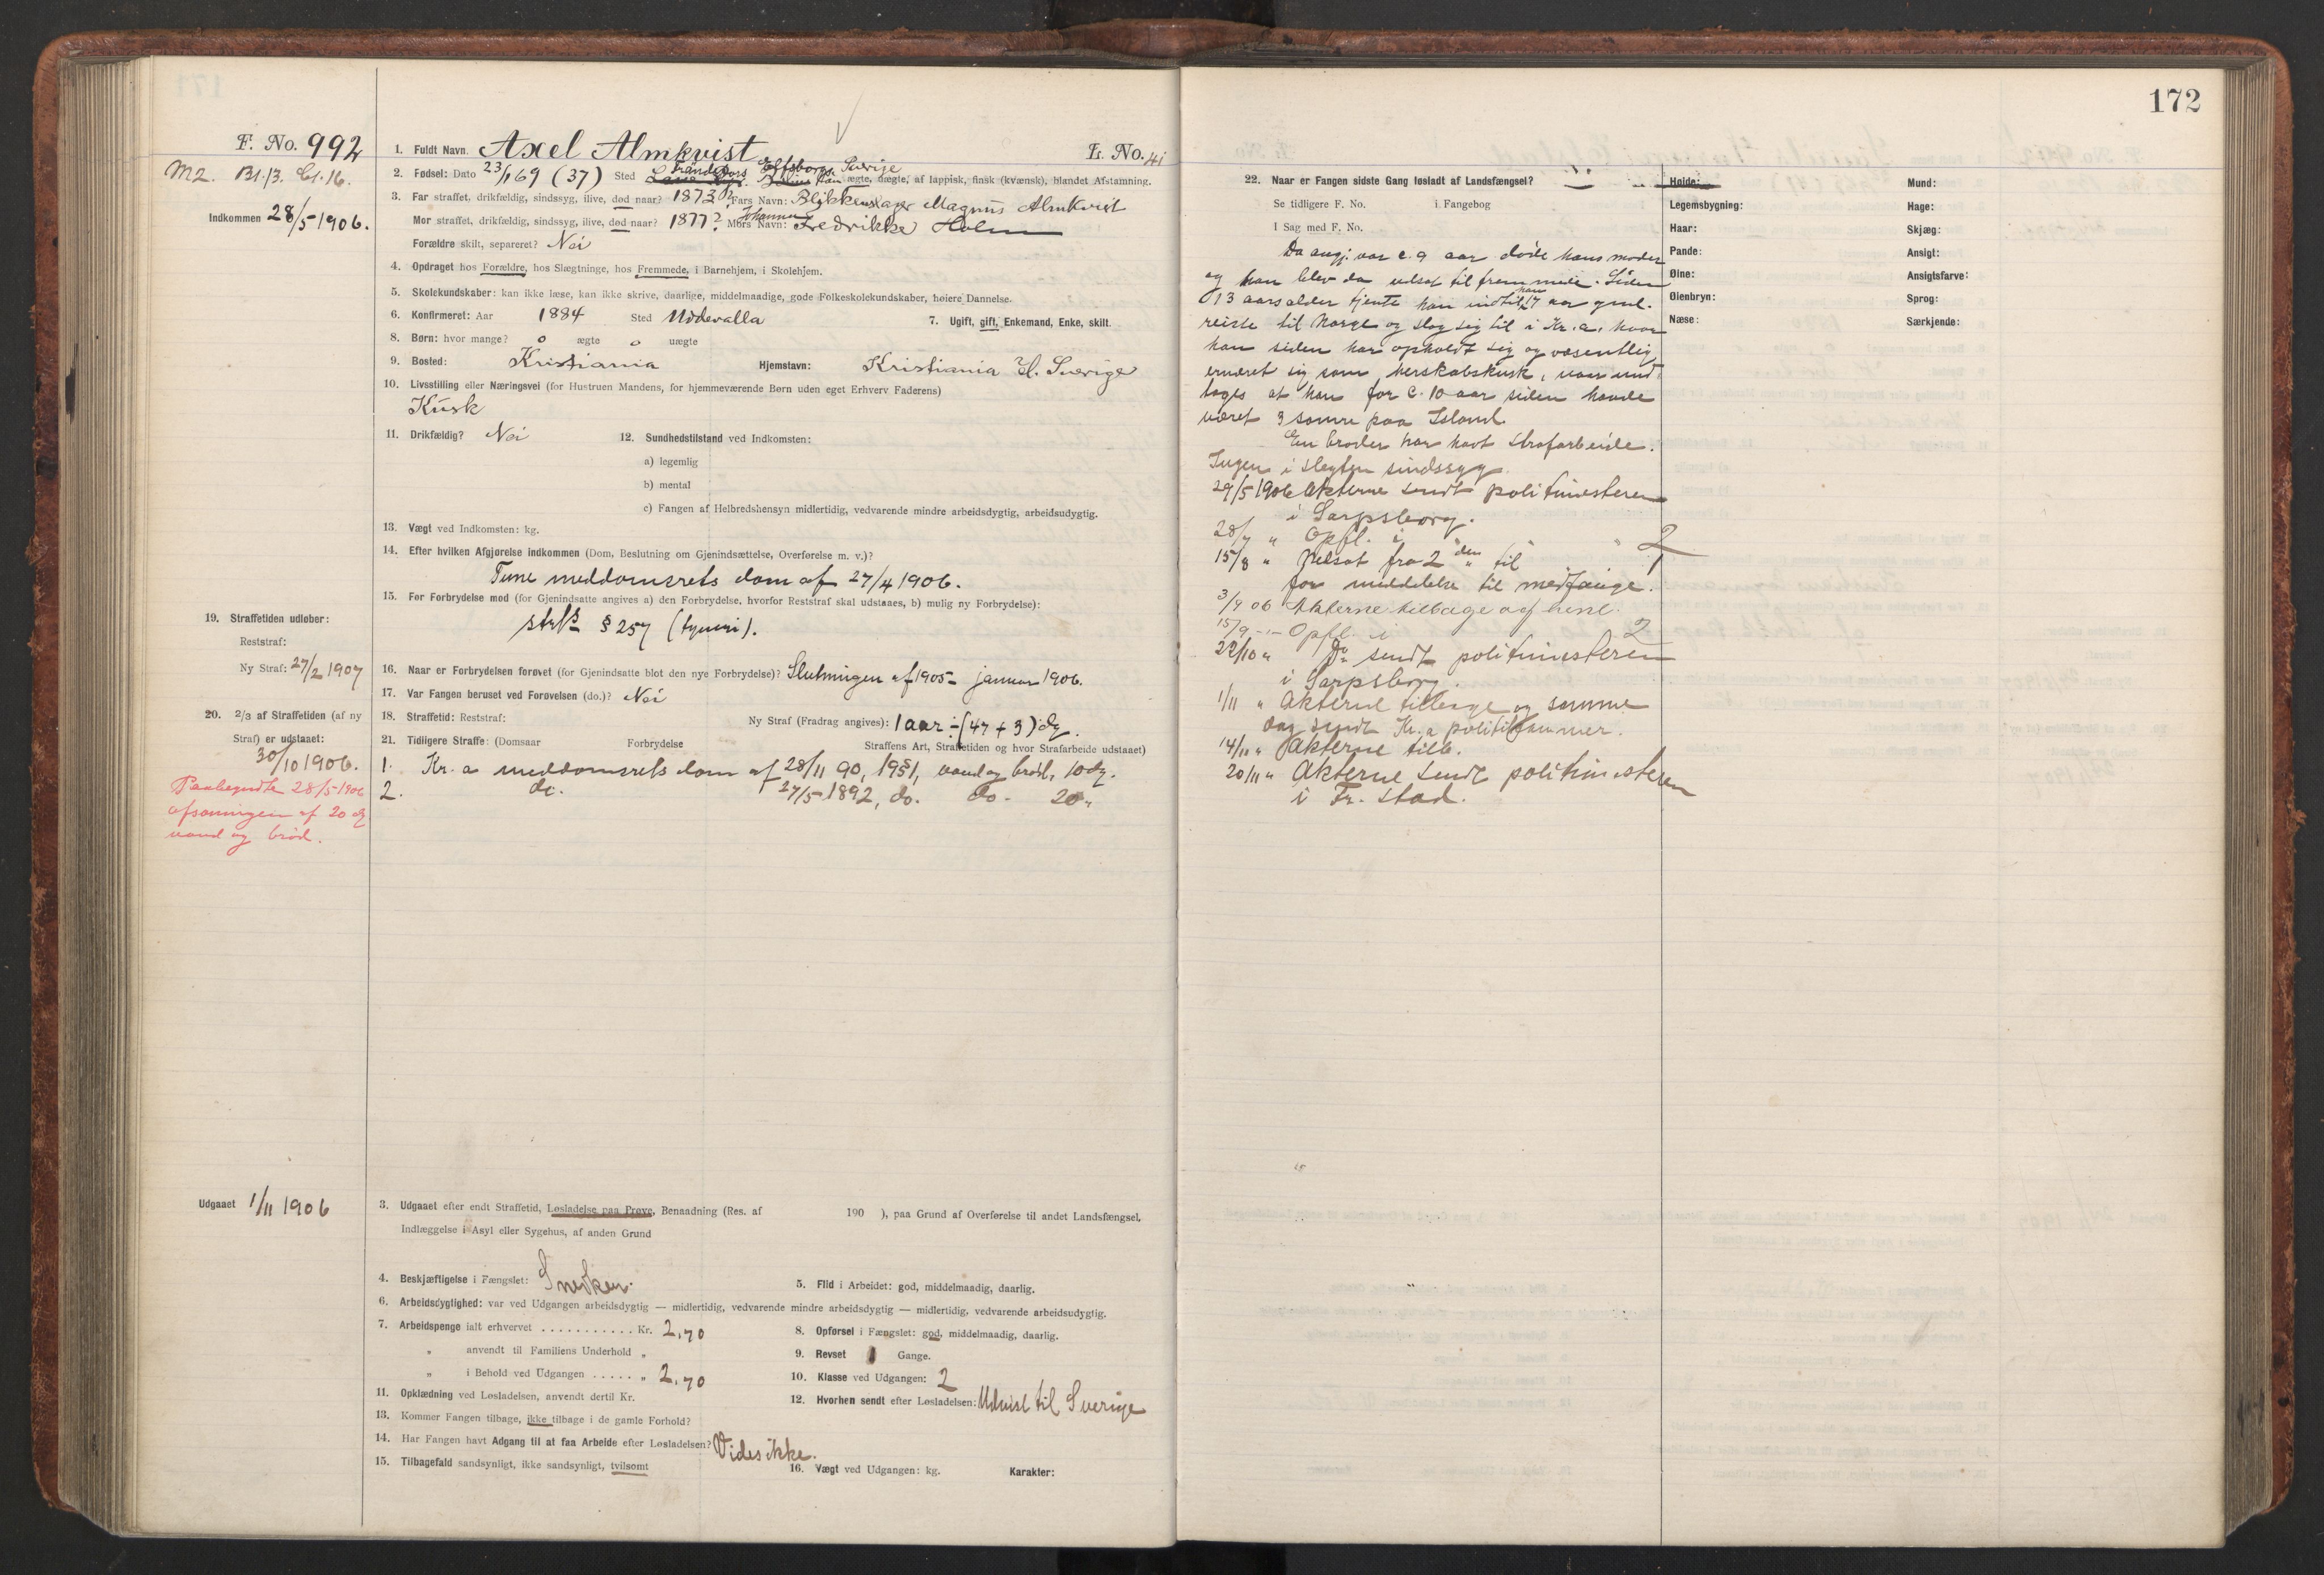 172
F. No. 992
M2. Bl. 13. Cl. 16.
Indkommen 28/5 1906.
1. Fuldt Navn. Axel Almkvist L. No. 41
Frändefors Elfsborgs Sverige
2. Fødsel: Dato 23/1 69 (37) Sted ægte, uægte, af lappisk, finsk (kvænsk), blandet Afstamning.
3. Far straffet, drikfældig, sindssyg, ilive, død naar? 1873? Fars Navn: Blikkenslager Magnus Almkvist
Mor straffet, drikfældig, sindssyg, ilive, død naar? 1877? Mors Navn: Johanna Fredrikke Holm
Forældre skilt, separeret? Nei
4. Opdraget hos Forældre, hos Slægtninge, hos Fremmede, i Barnehjem, i Skolehjem.
5. Skolekundskaber: kan ikke læse, kan ikke skrive, daarlige, middelmaadige, gode Folkeskolekundskaber, høiere Dannelse.
6. Konfirmeret: Aar 1884 Sted Uddevalla 7. Ugift, gift, Enkemand, Enke, skilt.
8. Børn: hvor mange? 0 ægte 0 uægte
9. Bosted: Kristiania Hjemstavn: Kristiania H. Sverige
10. Livsstilling eller Næringsvei (for Hustruen Mandens, for hjemmeværende Børn uden eget Erhverv Faderens)
Kusk
11. Drikfældig? Nei 12. Sundhedstilstand ved Indkomsten:
a) legemlig
b) mental
c) Fangen af Helbredshensyn midlertidig, vedvarende mindre arbeidsdygtig, arbeidsudygtig.
13. Vægt ved Indkomsten: kg.
14. Efter hvilken Afgjørelse indkommen (Dom, Beslutning om Gjenindsættelse, Overførelse m. v.)?
Tune meddomsrets dom af 27/4 1906.
15. For Forbrydelse mod (for Gjenindsatte angives a) den Forbrydelse, hvorfor Reststraf skal udstaaes, b) mulig ny Forbrydelse):
§ 257 (tyveri).
19. Straffetiden udløber:
Reststraf:
Ny Straf: 27/2 1907
16. Naar er Forbrydelsen forøvet (for Gjenindsatte blot den nye Forbrydelse)? Slutningen af 1905 - januar 1906.
17. Var Fangen beruset ved Forøvelsen (do.)? Nei
20. 2/3 af Straffetiden (af ny
Straf) er udstaaet:
30/10 1906.
18. Straffetid: Reststraf: Ny Straf (Fradrag angives): 1 aar ÷ (47 + 3) dg.
21. Tidligere Straffe: (Domsaar Forbrydelse Straffens Art, Straffetiden og hvor Strafarbeide udstaaet)
1. Kr.a meddomsrets dom af 28/11 90, 19 § 1, vand og brød, 10 dg.
2. do. 27/5 1892, do. do. 20 "
Paabegyndte 28/5 1906
afsoningen af 20 dg
vand og brød.
Udgaaet 1/11 1906
3. Udgaaet efter endt Straffetid, Løsladelse paa Prøve, Benaadning (Res. af 190 ), paa Grund af Overførelse til andet Landsfængsel,
Indlæggelse i Asyl eller Sygehus, af anden Grund
4. Beskjæftigelse i Fængslet: Snedker. 5. Flid i Arbeidet: god, middelmaadig, daarlig.
6. Arbeidsdygtighed: var ved Udgangen arbeidsdygtig — midlertidig, vedvarende mindre arbeidsdygtig — midlertidig, vedvarende arbeidsudygtig.
7. Arbeidspenge ialt erhvervet . . . . . . . . . . . Kr. 2,70 8. Opførsel i Fængslet: god, middelmaadig, daarlig.
" anvendt til Familiens Underhold " 9. Revset 1 Gange.
" i Behold ved Udgangen . . . . . " 2,70 10. Klasse ved Udgangen: 2
11. Opklædning ved Løsladelsen, anvendt dertil Kr. 12. Hvorhen sendt efter Løsladelsen: Udvist til Sverige
13. Kommer Fangen tilbage, ikke tilbage i de gamle Forhold?
14. Har Fangen havt Adgang til at faa Arbeide efter Løsladelsen? Vides ikke.
15. Tilbagefald sandsynligt, ikke sandsynligt, tvilsomt 16. Vægt ved Udgangen: kg. Karakter:
22. Naar er Fangen sidste Gang løsladt af Landsfængsel?
Se tidligere F. No. i Fangebog
I Sag med F. No.
Da angj. var c. 9 aar døde hans moder
og han blev da udsat til fremmede. Siden
13 aars alder tjente han indtil han 17 aar gml.
reiste til Norge og slog sig til i Kr.a, hvor
han siden har opholdt sig og væsentlig
ernæret sig som herskabskusk, naar und-
tages at han for c. 10 aar siden havde
været 3 somre paa Island.
En broder har havt strafarbeide.
Ingen i slegten sindssyg.
29/5 1906 Akterne sendt politimesteren
i Sarpsborg.
28/7 " Opfl. i 2
15/8 " Nedsat fra 2 den til 1
for meddelelse til medfange.
3/9 06 Akterne tilbage
15/9 - " - Opfl. i 2
22/10 " Do sendt politimesteren
i Sarpsborg.
1/11 " Akterne tilbage og samme
dag sendt Kr.a politikammer.
14/11 " Akterne tilb.
20/11 " Akterne sendt politimesteren
i Fr. stad.
Høide: Mund:
Legemsbygning: Hage:
Haar: Skjæg:
Pande: Ansigt:
Øine: Ansigtsfarve:
Øienbryn: Sprog:
Næse: Særkjende: